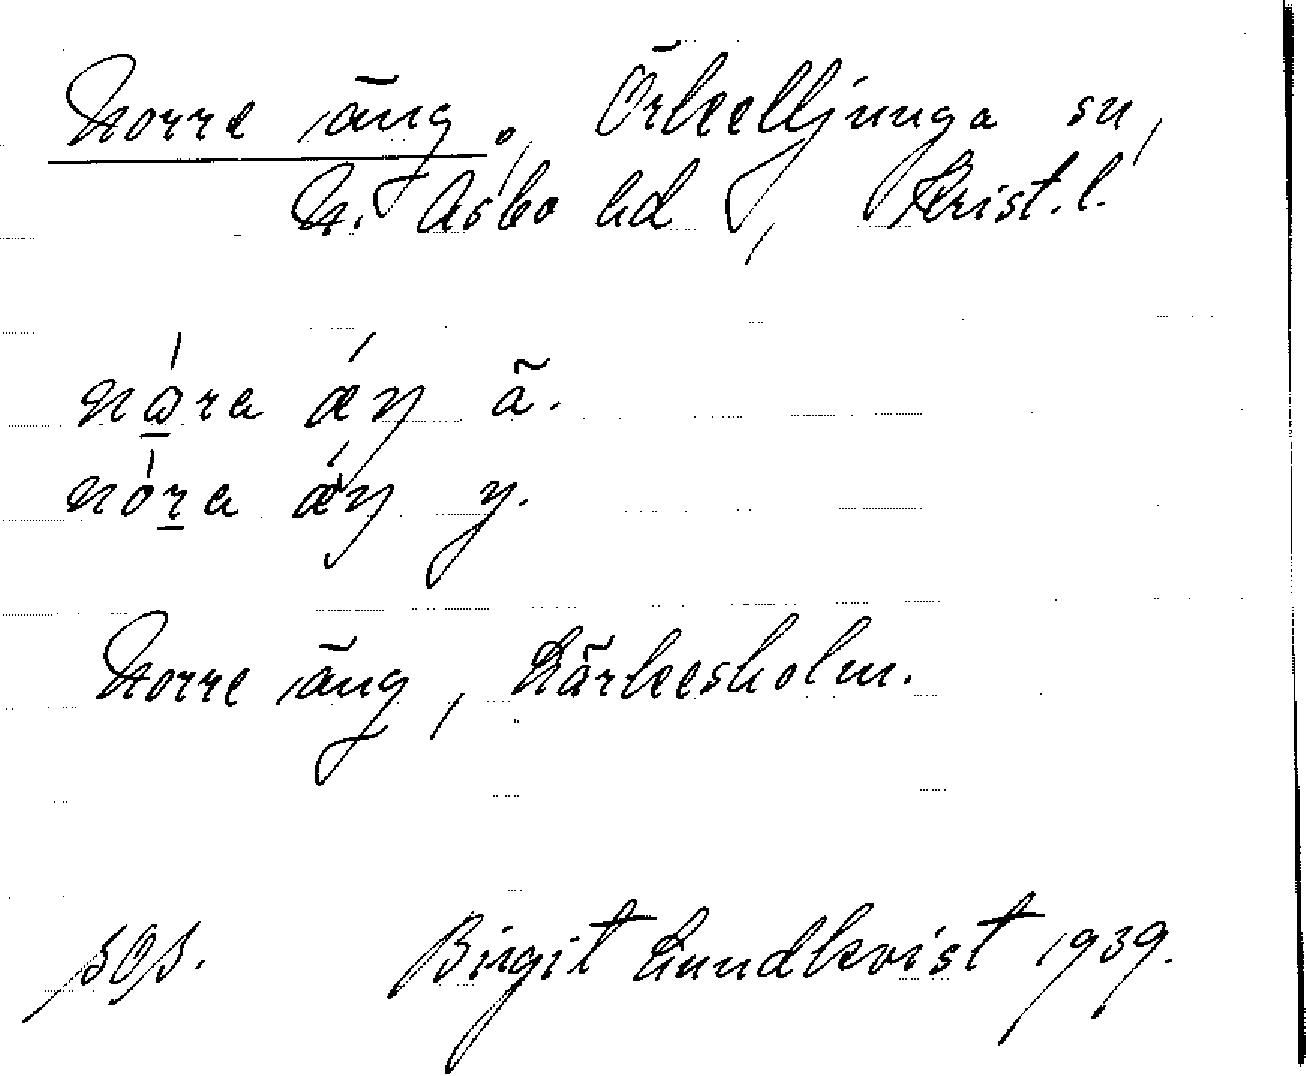 Norre äng, Örkelljunga sn,
N. Åsbo hd, Krist. l.
nåra æŋ ä.
nóra æŋ y.
Norre äng, Lärkesholm.
Birgit Lundkvist 1939.